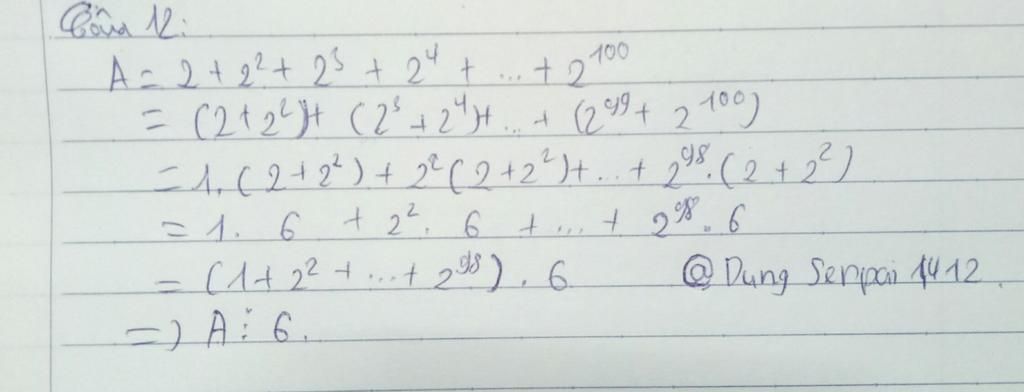 Câu 12:
A = 2 + 2² + 2³ + 2⁴ + ... + 2¹⁰⁰
= (2 + 2²) + (2³ + 2⁴) + ... + (2⁹⁹ + 2¹⁰⁰)
= 1. (2 + 2²) + 2² (2 + 2²) + ... + 2⁹⁸. (2 + 2²)
= 1. 6 + 2². 6 + ... + 2⁹⁸. 6
= (1 + 2² + ... + 2⁹⁸) . 6 @Dung Senpai 1412
=> A ⋮ 6.